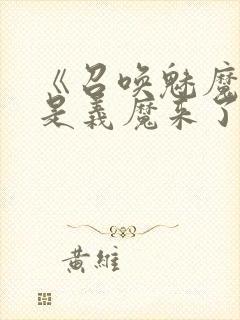 《召唤魅魔
是義魔来了
黃維